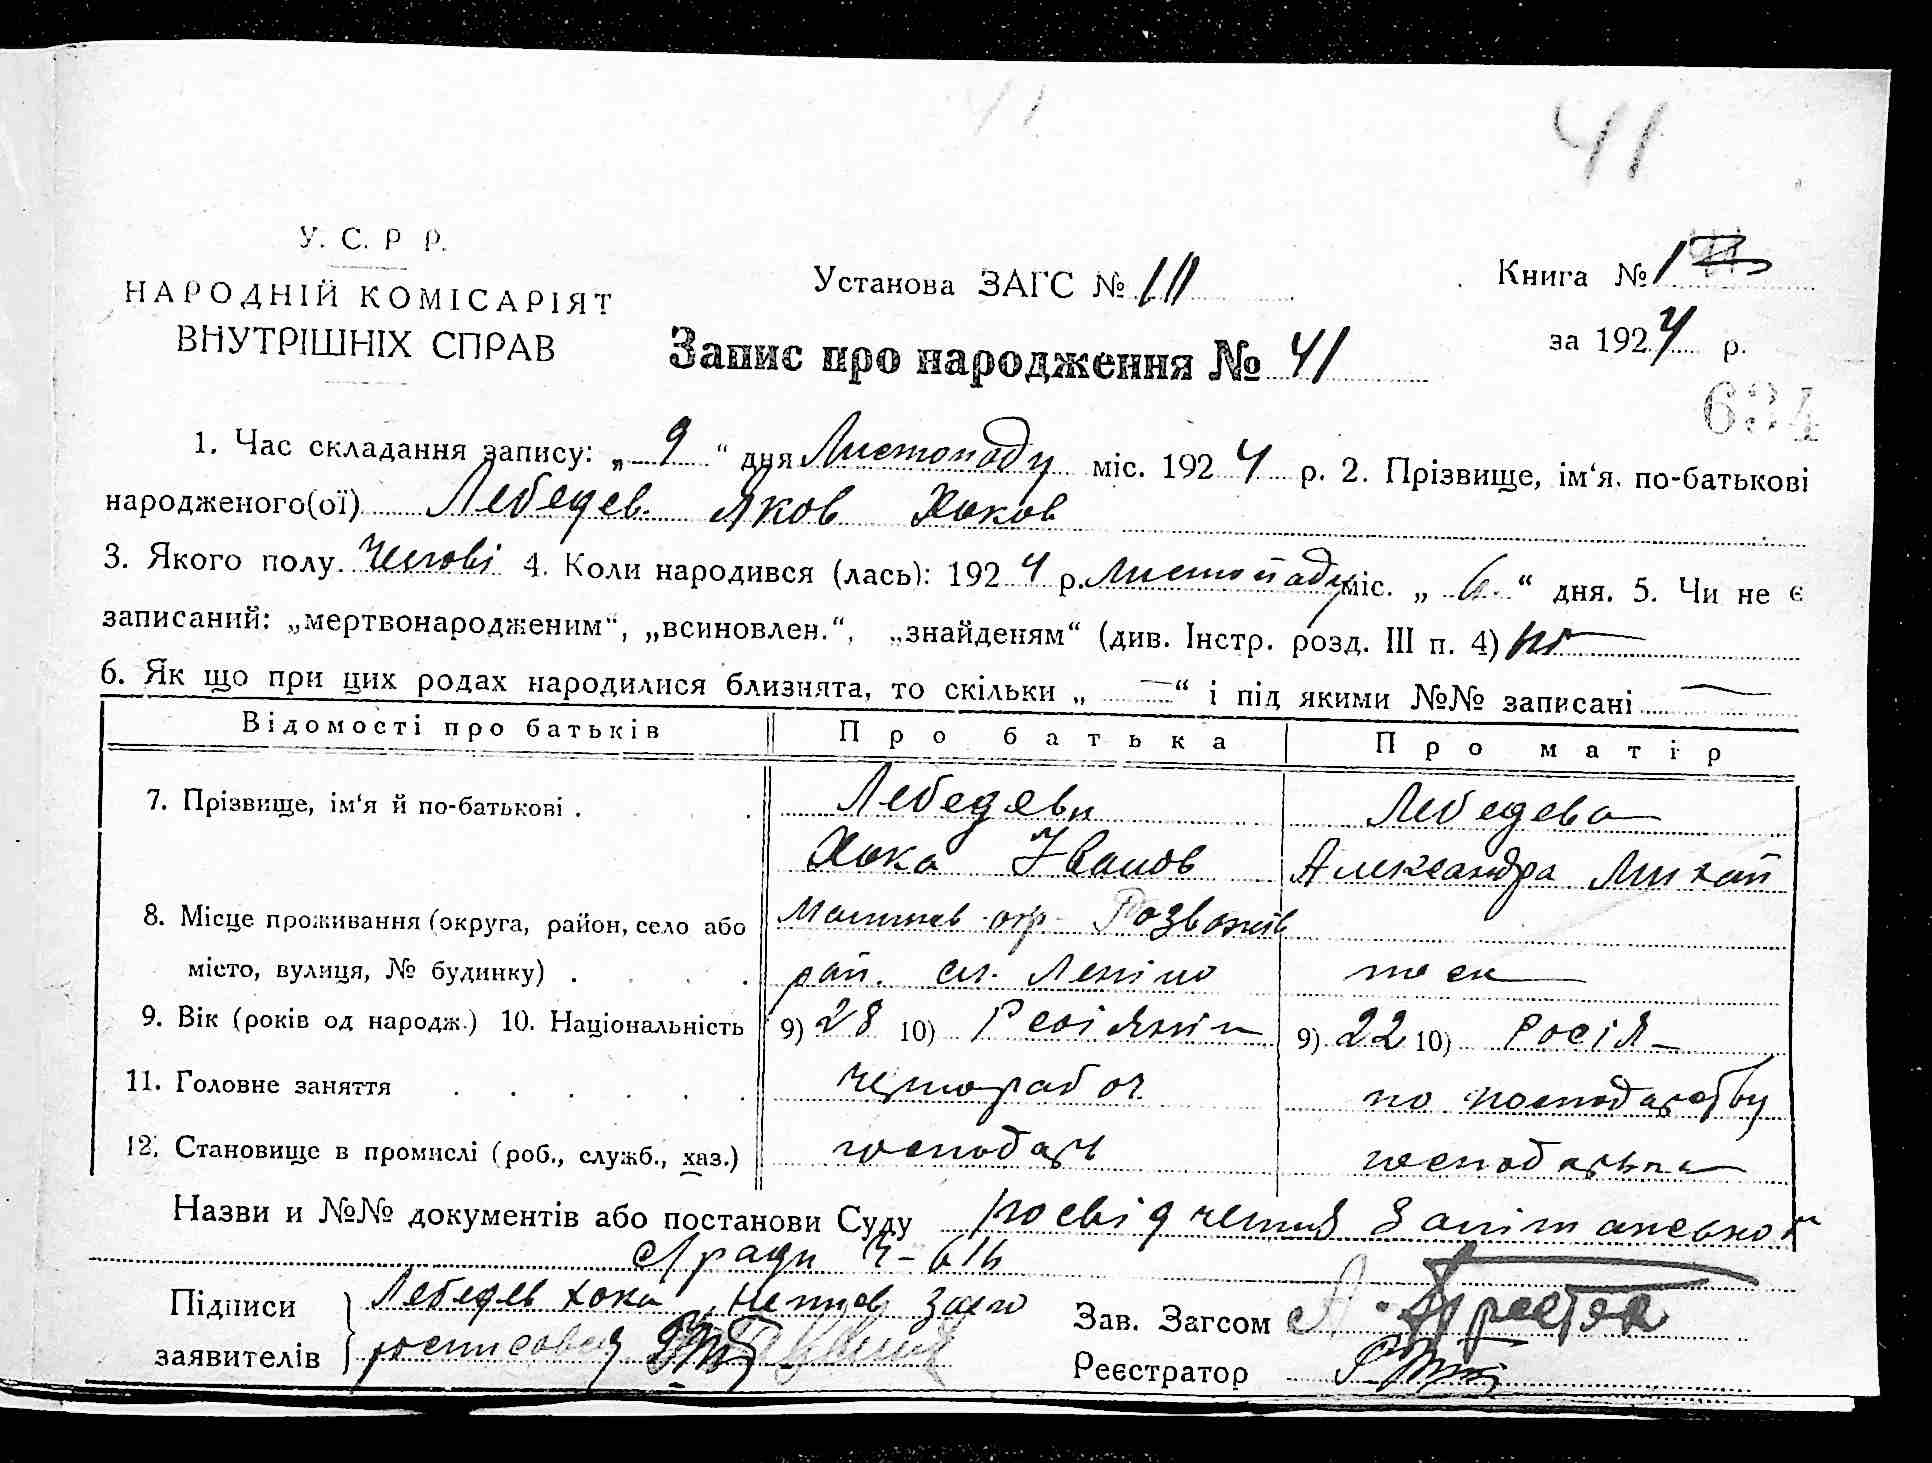 41
У. С. Р Р.
НАРОДНІЙ КОМІСАРІЯТ
ВНУТРІШНІХ СПРАВ
Установа ЗАГС №
Книга № 1
за 1924 р.
Запис про народження № 41
634
1. Час складання запису: „ 9 “ дня Листопаду міс. 1924 р. 2. Прізвище, ім‘я, по-батькові
народженого(ої) Лебедев Яков Хоков
3. Якого полу Чолові 4. Коли народився (лась): 1924 р. Листопаду міс. „ 6 “ дня. 5. Чи не є
записаний: „мертвонародженим“, „всиновлен.“, „знайденям“ (див. Інстр. розд. III п. 4) ні
6. Як що при цих родах народилися близнята, то скільки „ — “ і під якими №№ записані —
Відомості про батьків Про батька Про матір
7. Прізвище, ім‘я й по-батькові . . Лебедеви Лебедева
Хока Іванов Александра Михай
8. Місце проживання (округа, район, село або Розважів
місто, вулиця, № будинку) . . . . рай. сл. Леніно
9. Вік (років од народж.) 10. Національність 9) 28 10) Росіянин 9) 22 10) Росія
11. Головне заняття . . . . . . чернораб по господарству
12. Становище в промислі (роб., служб., хаз.) господарь
Назви и №№ документів або постанови Суду посвідчення
с/ради
Підписи Лебедев Хока
заявителів
Зав. Загсом
Реєстратор